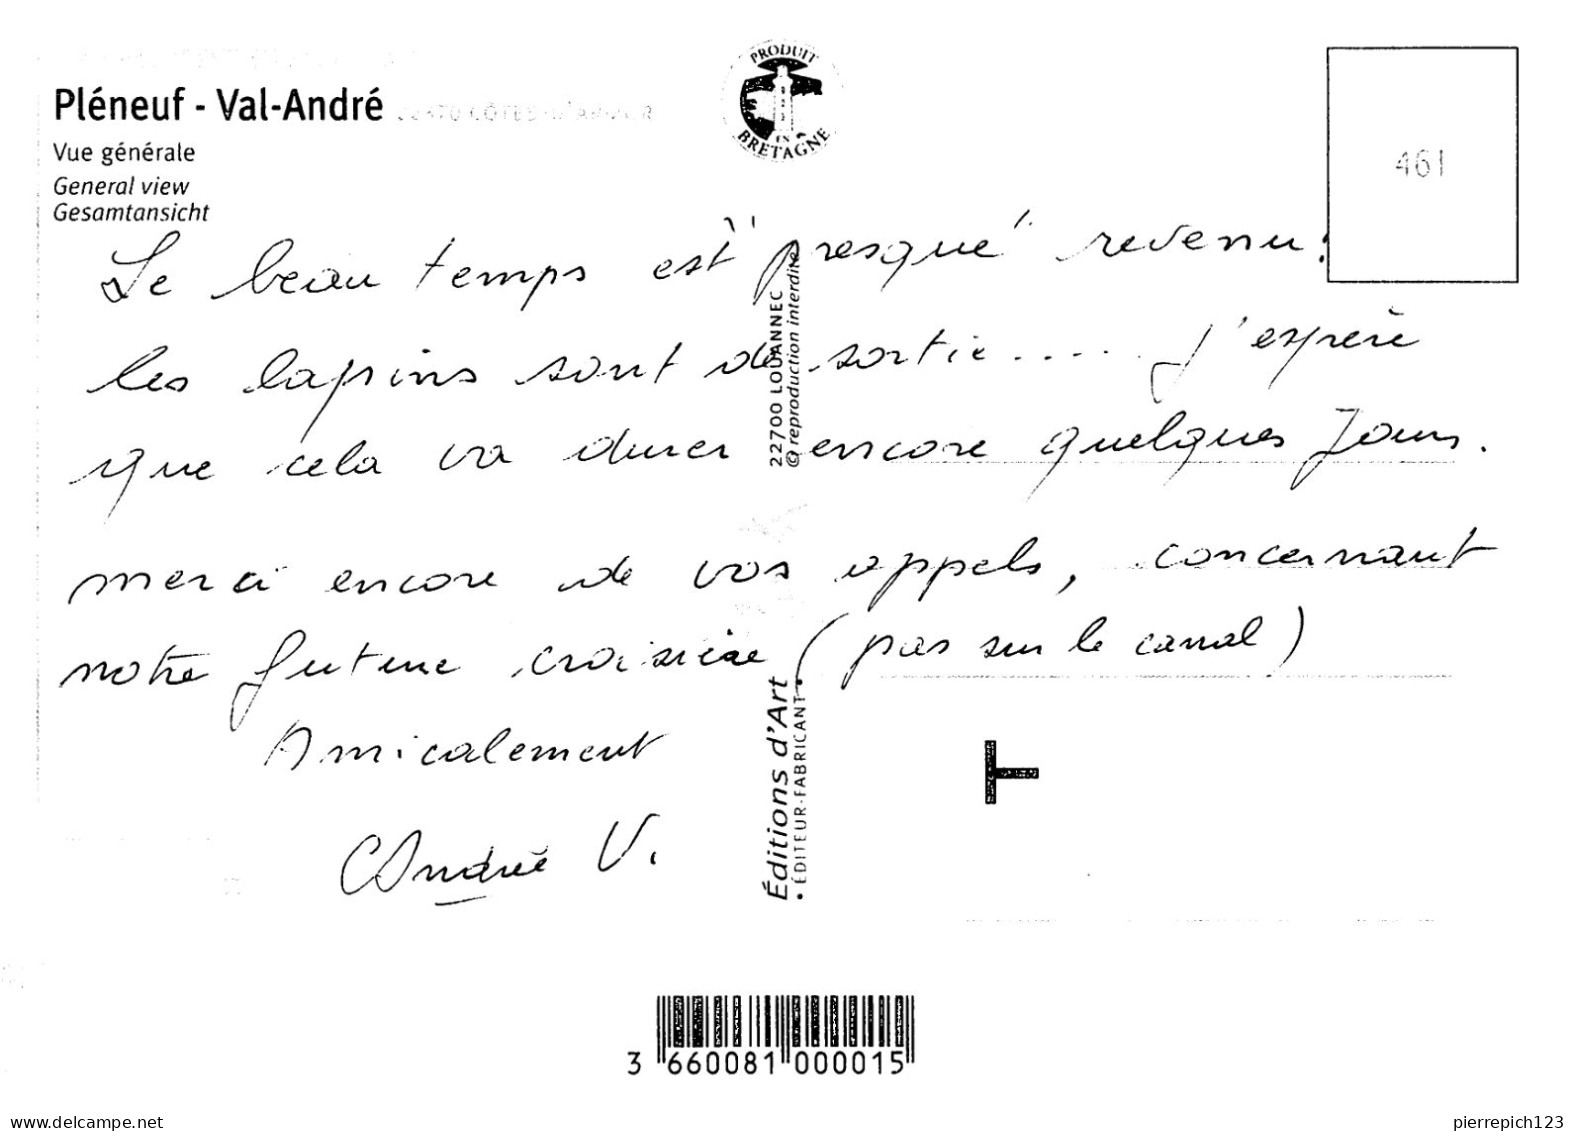 Pléneuf - Val-André
Vue générale
General view
Gesamtansicht
PRODUIT
EN
BRETAGNE
461
Le beau temps est "presque" revenu :
les lapins sont de sortie..... J'espère
que cela va durer encore quelques Jours.
merci encore de vos appels, concernant
notre future croisière (pas sur le canal)
Amicalement
André V.
22700 LOUANNEC
© reproduction interdite
Éditions d'Art
• ÉDITEUR-FABRICANT •
3 660081 000015
www.delcampe.net
pierrepich123